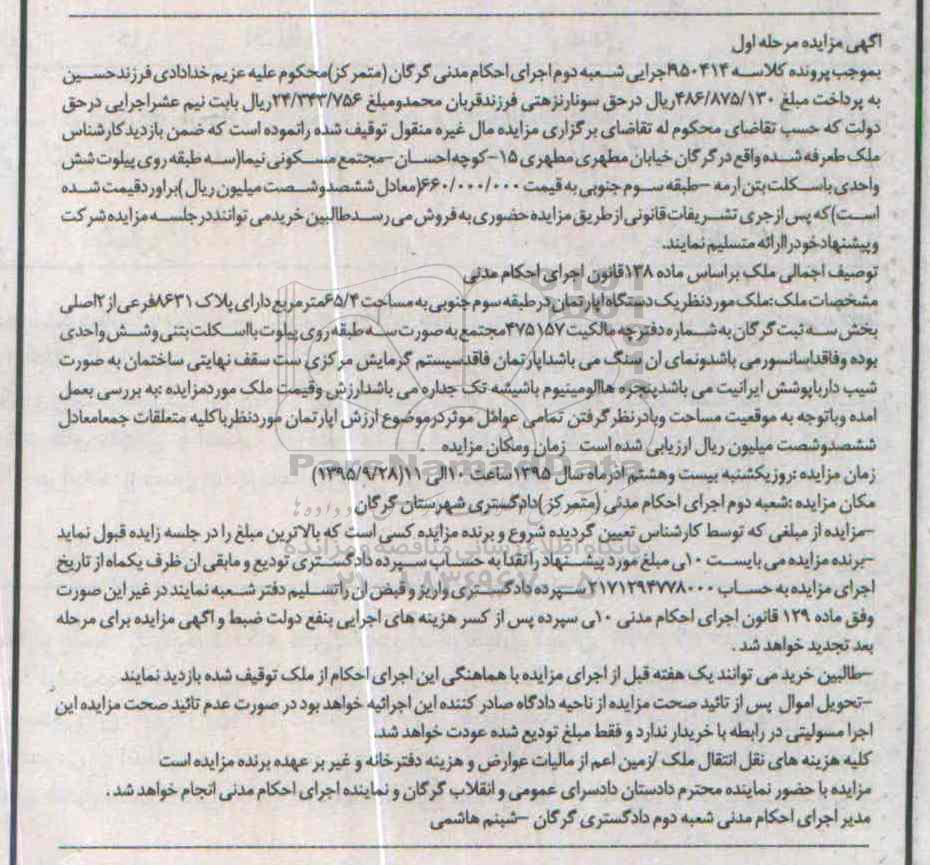 آگهی مزایده مرحله اول
بموجب پرونده کلاسه ۹۵۰۴۱۴اجرایی شعبه دوم اجرای احکام مدنی گرگان (متمرکز)محکوم علیه عزیم خدادادی فرزندحسین
به پرداخت مبلغ ۴۸۶/۸۷۵/۱۳۰ریال درحق سونارنزهتی فرزندقربان محمدومبلغ ۲۴/۳۴۳/۷۵۶ریال بابت نیم عشراجرایی درحق
دولت که حسب تقاضای محکوم له تقاضای برگزاری مزایده مال غیره منقول توقیف شده رانموده است که ضمن بازدیدکارشناس
ملک طعرفه شده واقع درگرگان خیابان مطهری مطهری ۱۵-کوچه احسان-مجتمع مسکونی نیما(سه طبقه روی پیلوت شش
واحدی باسکلت بتن ارمه -طبقه سوم جنوبی به قیمت ۶۶۰/۰۰۰/۰۰۰(معادل ششصدوشصت میلیون ریال )براوردقیمت شده
است)که پس ازجری تشریفات قانونی ازطریق مزایده حضوری به فروش می رسدطالبین خریدمی تواننددرجلسه مزایده شرکت
وپیشنهادخودراارائه متسلیم نمایند.
توصیف اجمالی ملک براساس ماده ۱۳۸قانون اجرای احکام مدنی
مشخصات ملک:ملک موردنظریک دستگاه اپارتمان درطبقه سوم جنوبی به مساحت ۶۵/۴مترمربع دارای پلاک ۸۶۳۱فرعی از۲اصلی
بخش سه ثبت گرگان به شماره دفترچه مالکیت ۴۷۵۱۵۷مجتمع به صورت سه طبقه روی پیلوت بااسکلت بتنی وشش واحدی
بوده وفاقداسانسورمی باشدونمای ان سنگ می باشداپارتمان فاقدسیستم گرمایش مرکزی ست سقف نهایتی ساختمان به صورت
شیب دارباپوشش ایرانیت می باشدپنجره هاالومینیوم باشیشه تک جداره می باشدارزش وقیمت ملک موردمزایده :به بررسی بعمل
امده وباتوجه به موقعیت مساحت وبادرنظرگرفتن تمامی عوامل موثردرموضوع ارزش اپارتمان موردنظرباکلیه متعلقات جمعامعادل
ششصدوشصت میلیون ریال ارزیابی شده است زمان ومکان مزایده
زمان مزایده :روزیکشنبه بیست وهشتم اذرماه سال ۱۳۹۵ساعت ۱۰الی ۱۱(۱۳۹۵/۹/۲۸)
مکان مزایده :شعبه دوم اجرای احکام مدنی (متمرکز)دادگستری شهرستان گرگان
-مزایده از مبلغی که توسط کارشناس تعیین گردیده شروع و برنده مزایده کسی است که بالاترین مبلغ را در جلسه زایده قبول نماید
-برنده مزایده می بایست ۱۰ی مبلغ مورد پیشنهاد را نقدا به حساب سپرده دادگستری تودیع و مابقی ان ظرف یکماه از تاریخ
اجرای مزایده به حساب ۲۱۷۱۲۹۴۷۷۸۰۰۰سپرده دادگستری واریز و قبض ان را تسلیم دفتر شعبه نمایند در غیر این صورت
وفق ماده ۱۲۹ قانون اجرای احکام مدنی ۱۰ی سپرده پس از کسر هزینه های اجرایی بنفع دولت ضبط و اگهی مزایده برای مرحله
بعد تجدید خواهد شد .
-طالبین خرید می توانند یک هفته قبل از اجرای مزایده با هماهنگی این اجرای احکام از ملک توقیف شده بازدید نمایند
-تحویل اموال پس از تائید صحت مزایده از ناحیه دادگاه صادر کننده این اجرائیه خواهد بود در صورت عدم تائید صحت مزایده این
اجرا مسولیتی در رابطه با خریدار ندارد و فقط مبلغ تودیع شده عودت خواهد شد.
کلیه هزینه های نقل انتقال ملک /زمین اعم از مالیات عوارض و هزینه دفترخانه و غیر بر عهده برنده مزایده است
مزایده با حضور نماینده محترم دادستان دادسرای عمومی و انقلاب گرگان و نماینده اجرای احکام مدنی انجام خواهد شد .
مدیر اجرای احکام مدنی شعبه دوم دادگستری گرگان -شبنم هاشمی
ParsNamadData
پایگاه اطلاع رسانی مناقصه و مزایده
۰۲۱-۸۸۳۴۹۶۷۰-۵